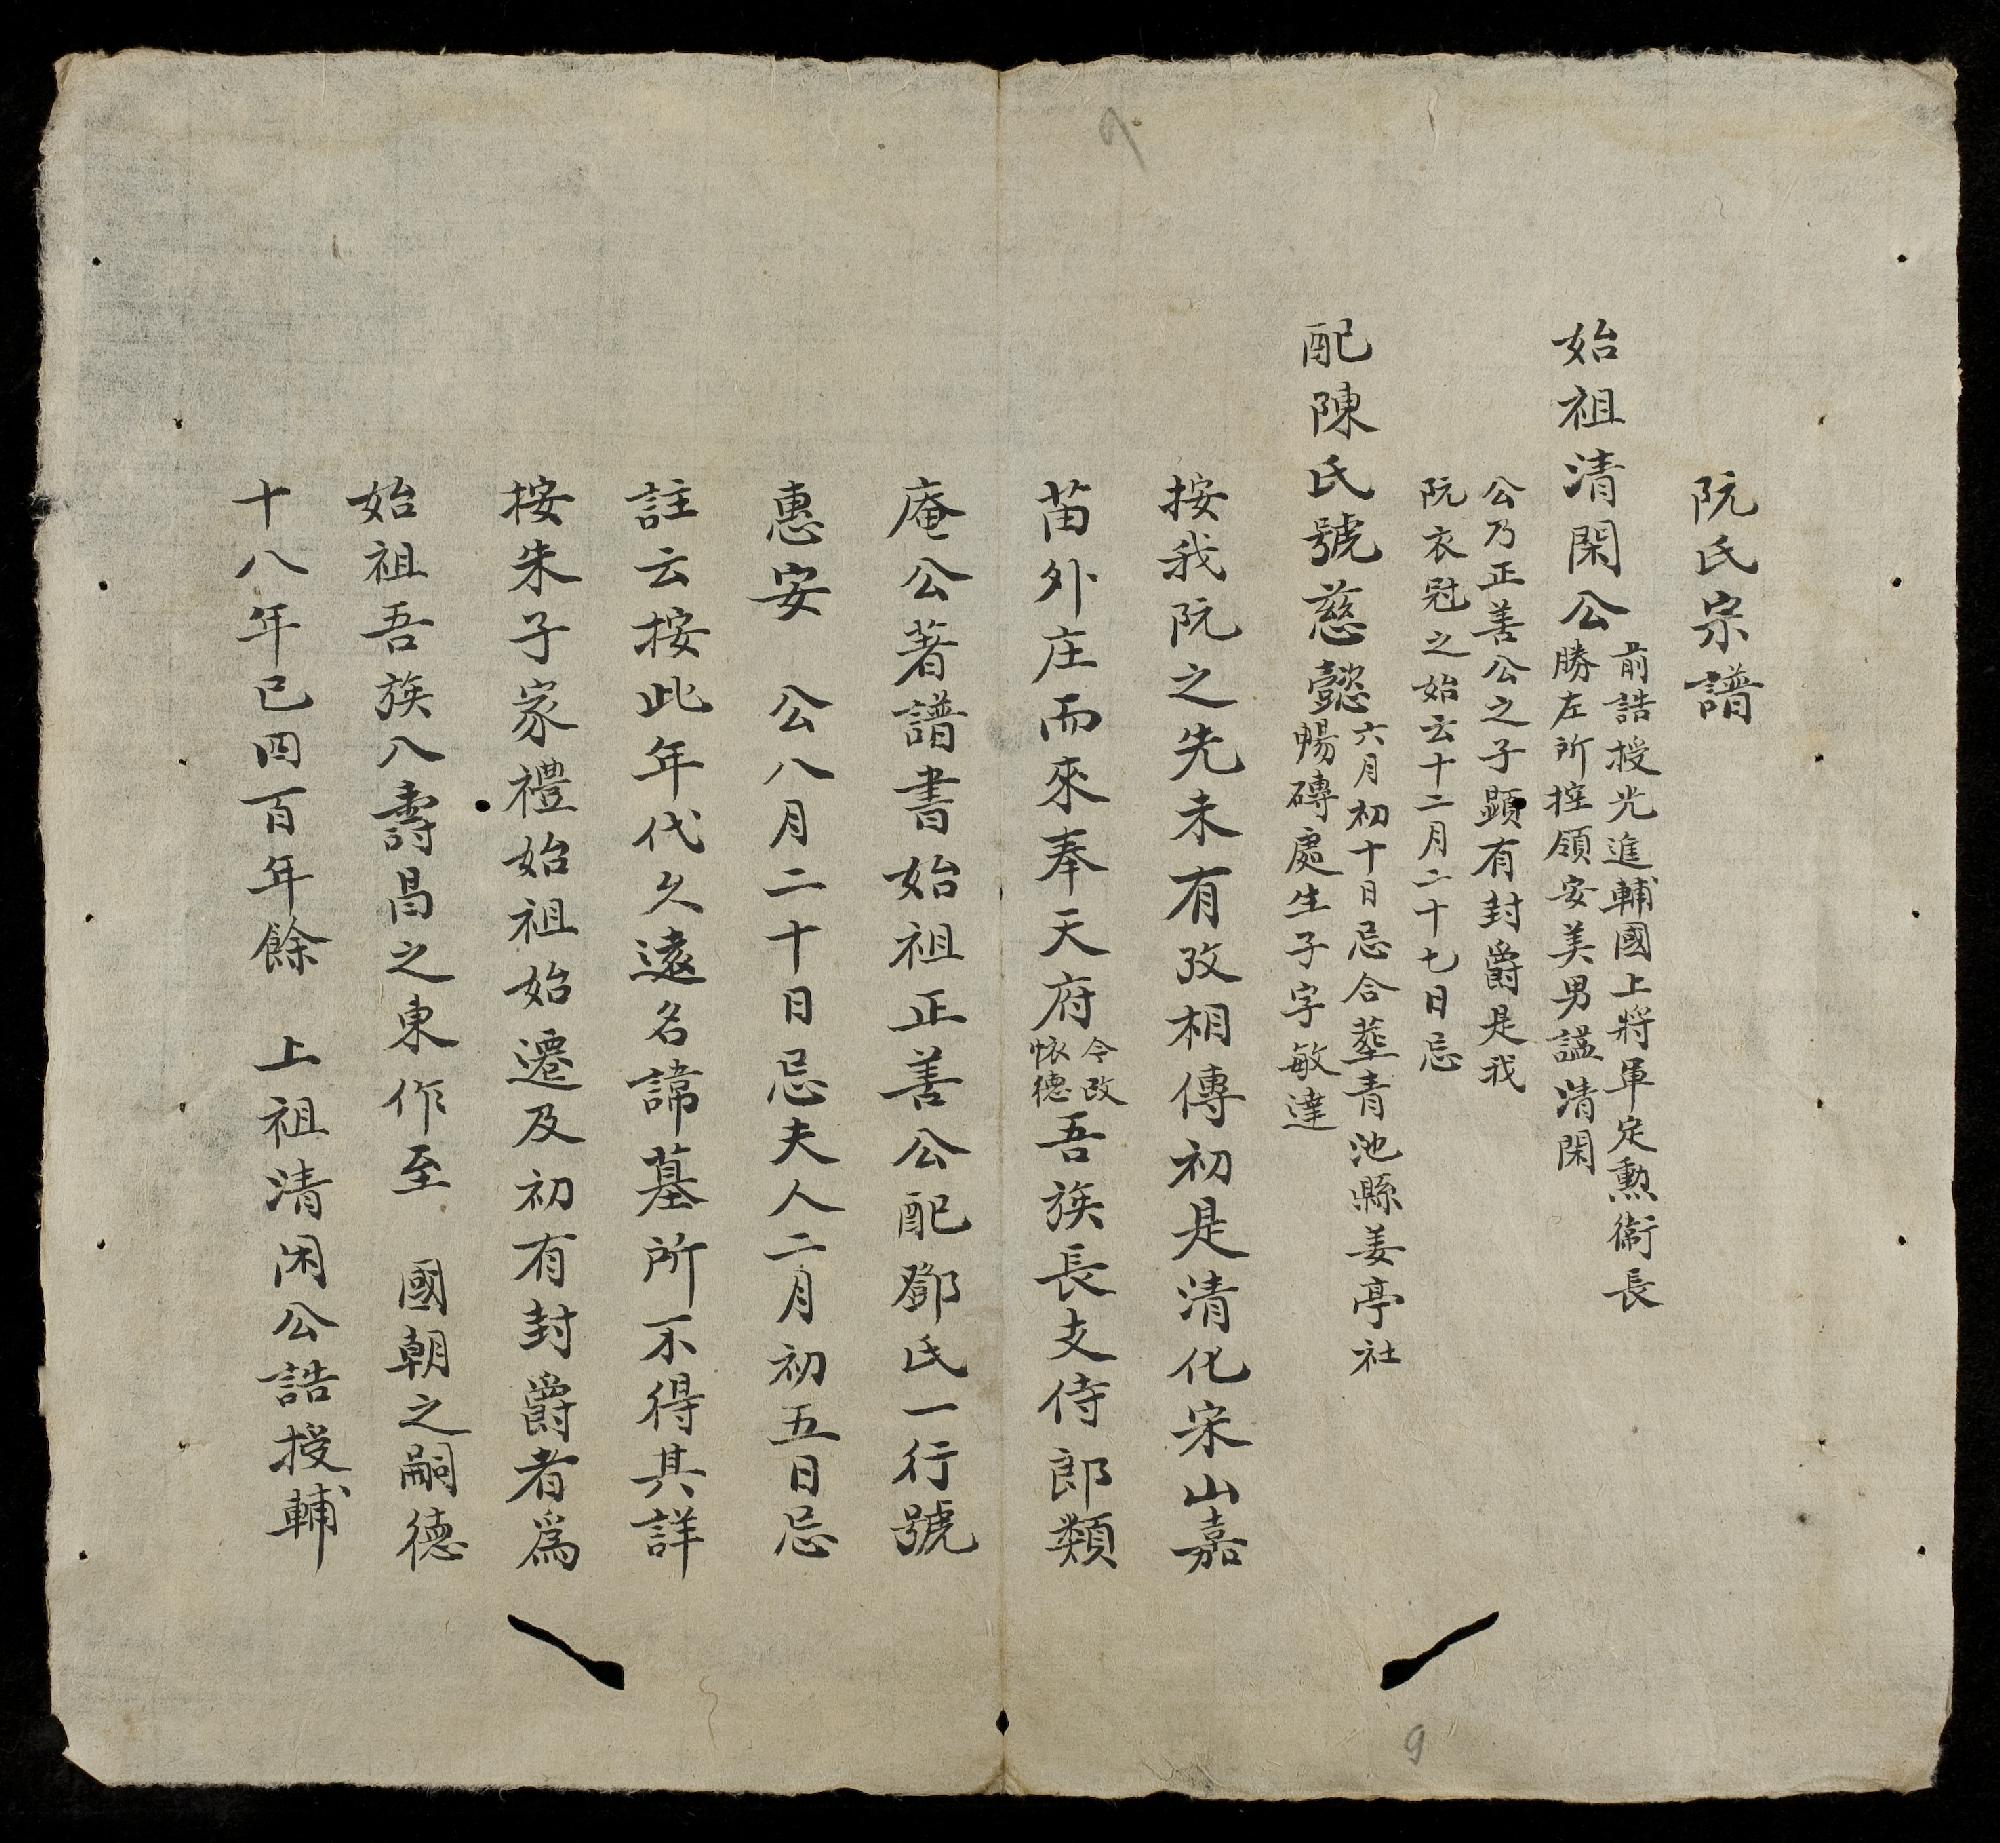 阮氏宗譜
始祖清閑公
前誥授光進輔國上將軍定勲衞長
勝左所控領安美男謚清閑
公乃正善公之子顕有封爵是我
阮衣冠之始云十二月二十七日忌
配陳氏號慈懿
六月初十日忌合葬青池縣姜亭社
暢磚處生子字敏達
按我阮之先未有攷相傳初是清化宋山嘉
苗外庄而來奉天府
今改
懷德
吾族長支侍郎類
庵公著譜書始祖正善公配鄧氏一行號
惠安 公八月二十日忌夫人二月初五日忌
註云按此年代久遠名諱墓所不得其詳
按朱子家禮始祖始遷及初有封爵者爲
始祖吾族八壽昌之東作至 國朝之嗣德
十八年已四百年餘 上祖清閑公誥授輔
9
9